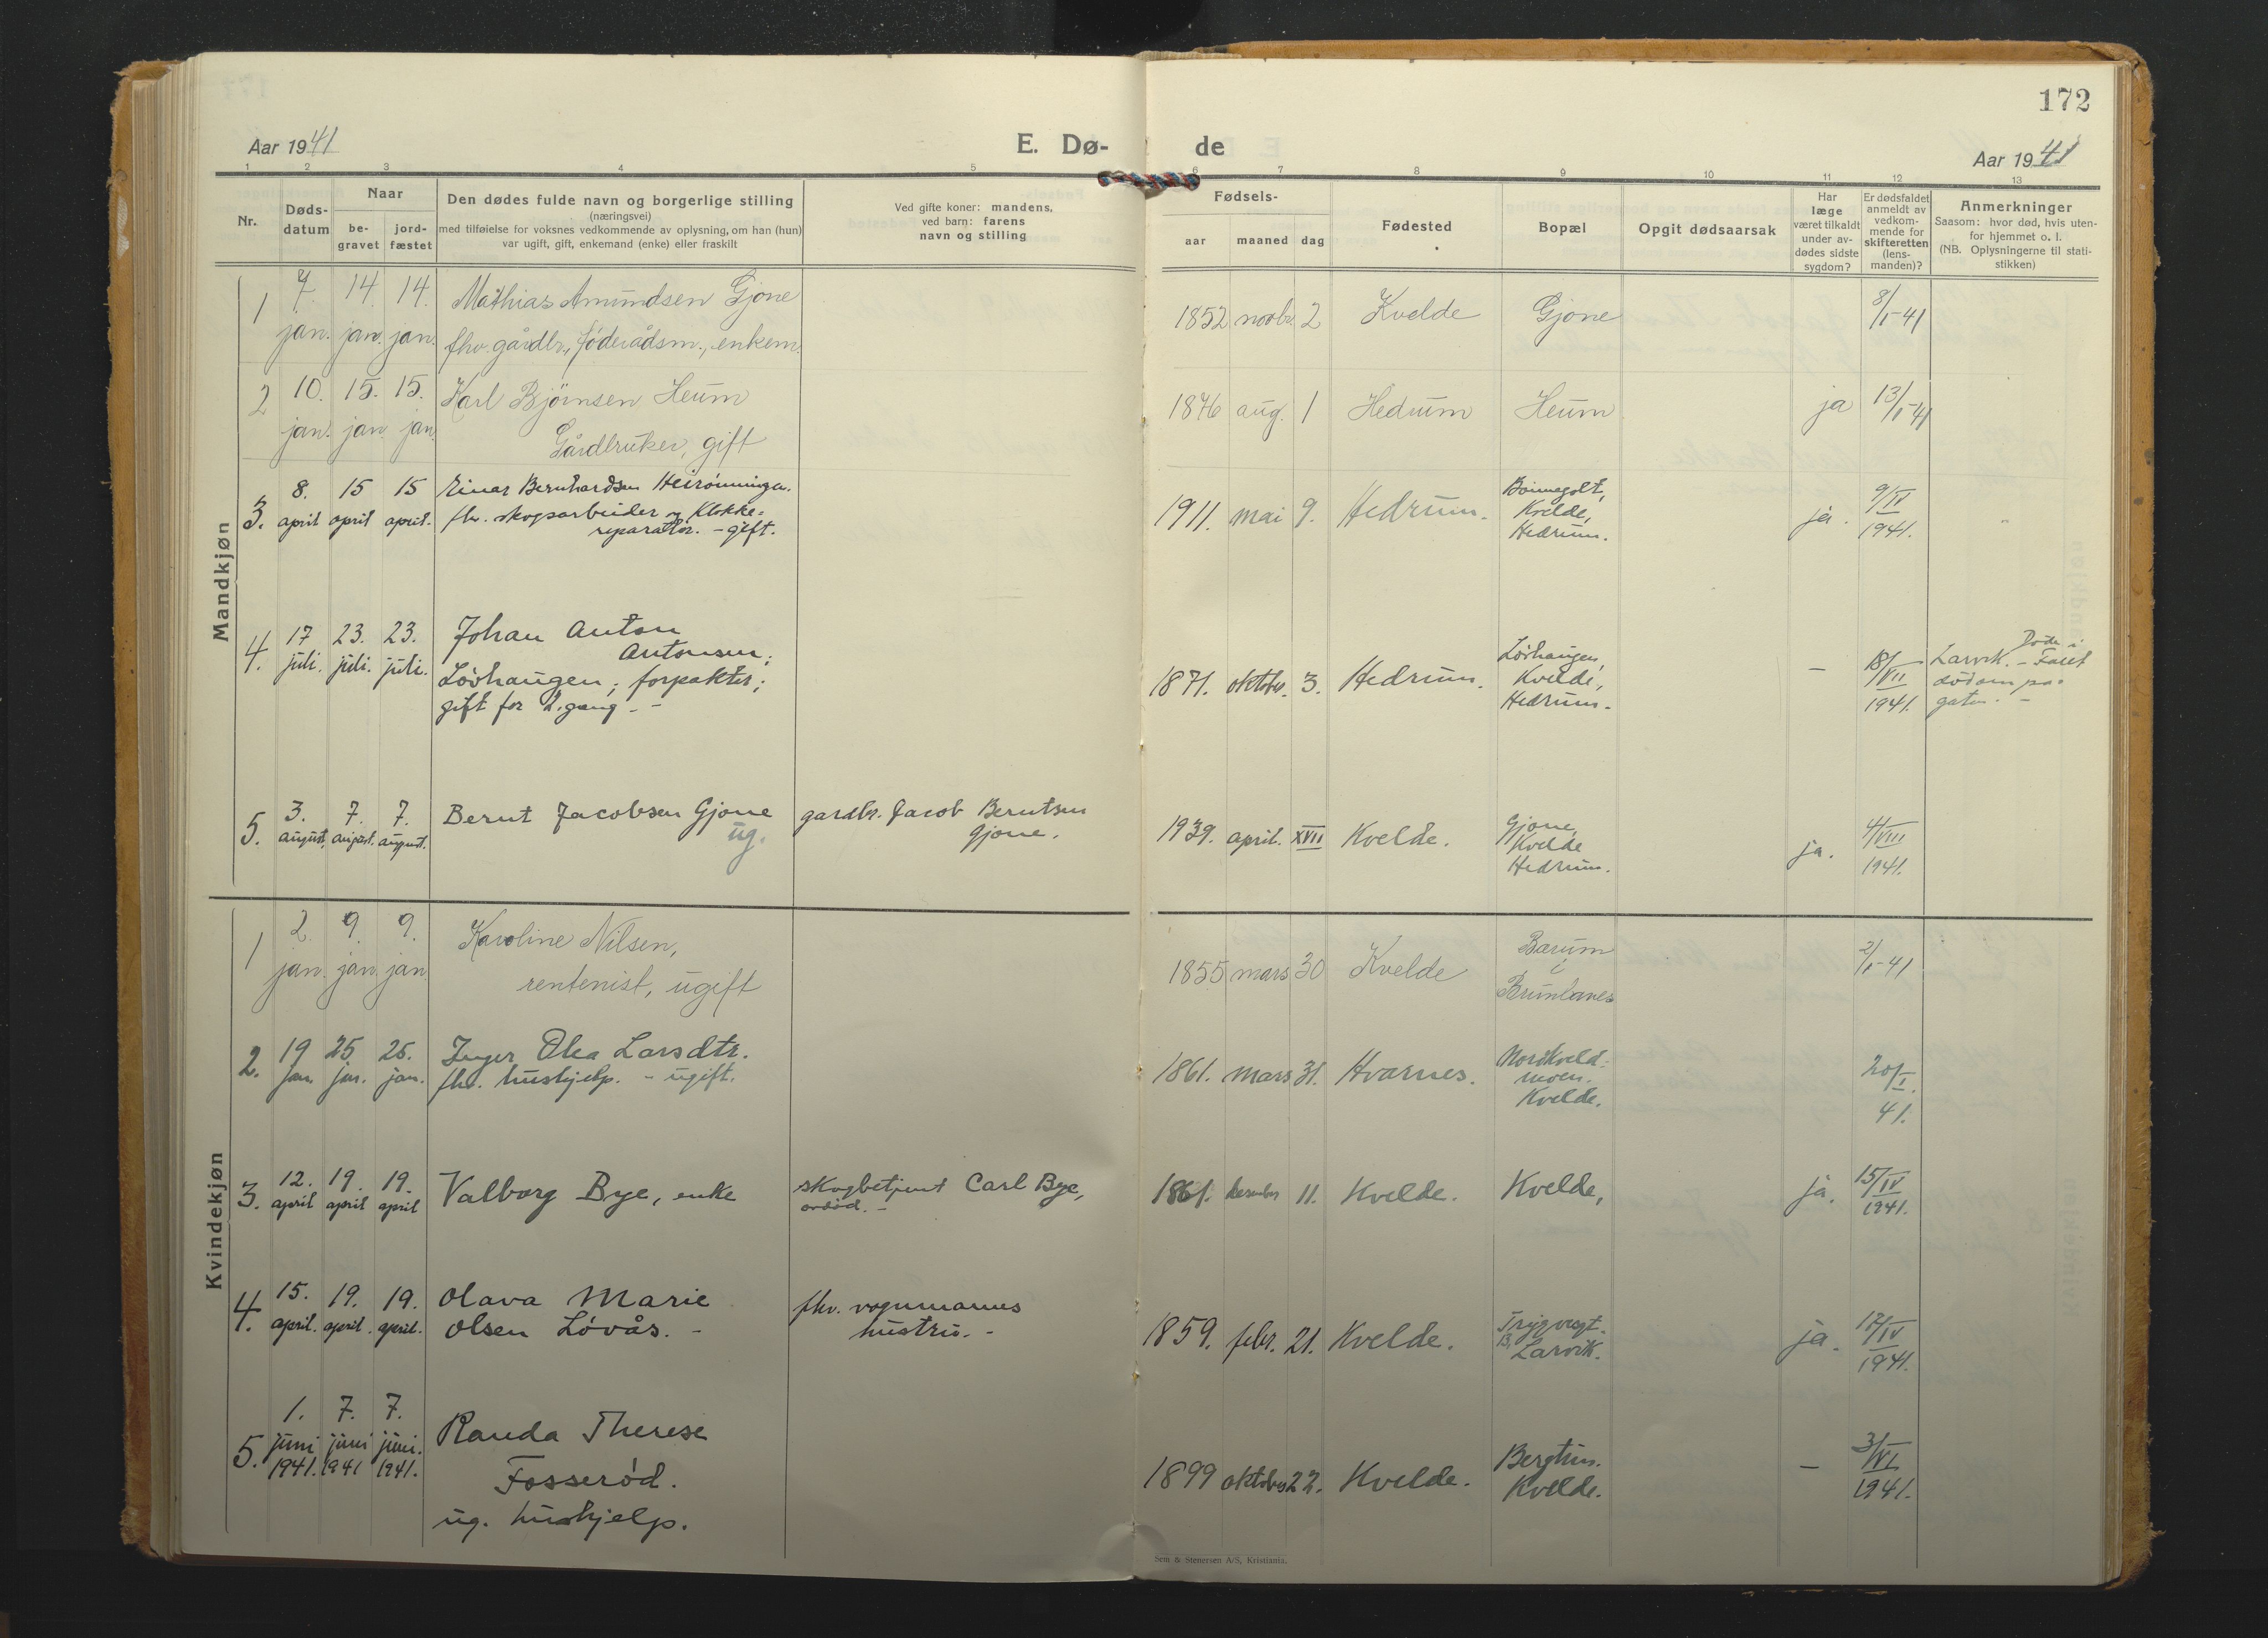 172
Aar 1941
E. Dø-
de
Aar 1941
1 2 3 4 5 6 7 8 9 10 11 12 13
Nr.
Døds-
datum
Naar
be-
gravet
jord-
fæstet
Den dødes fulde navn og borgerlige stilling
(næringsvei)
med tilføielse for voksnes vedkommende av oplysning, om han (hun)
var ugift, gift, enkemand (enke) eller fraskilt
Ved gifte koner: mandens,
ved barn: farens
navn og stilling
Fødsels-
aar maaned dag
Fødested
Bopæl
Opgit dødsaarsak
Har
læge
været tilkaldt
under av-
dødes sidste
sygdom?
Er dødsfaldet
anmeldt av
vedkom-
mende for
skifteretten
(lens-
manden)?
Anmerkninger
Saasom: hvor død, hvis uten-
for hjemmet o. l.
(NB. Oplysningerne til stati-
stikken)
Mandkjøn
1 7. 14. 14. Mathias Amundsen Gjone
jan. jan. jan. fhv. gårdbr., føderådsm., enkem.
1852 novbr. 2 Kvelde Gjone 8/1-41
2 10. 15. 15. Karl Bjørnsen Heum
jan. jan. jan. Gårdbruker, gift
1876 aug. 1 Hedrum Heum ja 13/1-41
3. 8. 15 15 Einar Bernhardsen
april april april. fhv. skogsarbeider og Klokke=
reparatør. - gift.
1911. mai 9. Hedrum.
Kvelde,
Hedrum.
ja. 9/IV
1941.
4. 17 23. 23. Johan Anton
juli. juli. juli. Antonsen;
Lövhaugen; forpakter;
gift for 2. gang. -
1871. oktober. 3. Hedrum.
Lövhaugen,
Kvelde,
Hedrum.
- 18/VII
1941.
Døde i
Larvik. - Falt
død om på
gaten. -
5. 3. 7. 7. Bernt Jacobsen Gjone
august. august. august. ug.
gardbr. Jacob Berntsen
Gjone.
1939. april. XVII Kvelde.
Gjone,
Kvelde
Hedrum.
ja. 4/VIII
1941.
Kvindekjøn
1 2. 9. 9. Karoline Nilsen,
jan. jan. jan rentenist, ugift
1855 mars 30 Kvelde
Bærum
i
Brunlanes
2/1-41
2. 19 25 25. Inger Olea Larsdtr.
jan. jan. jan. fhv. hushjelp. - ugift.
1861. mars 31. Hvarnes.
Nordkveld-
moen.
Kvelde.
20/I.
41.
3. 12. 19. 19. Valborg Bye, enke
april april april
skogbetjent Carl Bye,
avdöd. -
1861. desember 11. Kvelde. Kvelde, ja. 15/IV
1941.
4. 15. 19. 19. Olava Marie
april. april. april. Olsen Lövås. -
fhv. vognmanns
hustru. -
1859. febr. 21. Kvelde.
Larvik.
ja. 17/IV
1941.
5. 1. 7. 7. Randa Therese
juni juni juni. Fosseröd.
1941. 1941 1941. ug. hushjelp.
1899 oktober 22. Kvelde.
Kvelde.
- 3/VI
1941.
Sem & Stenersen A/S, Kristiania.